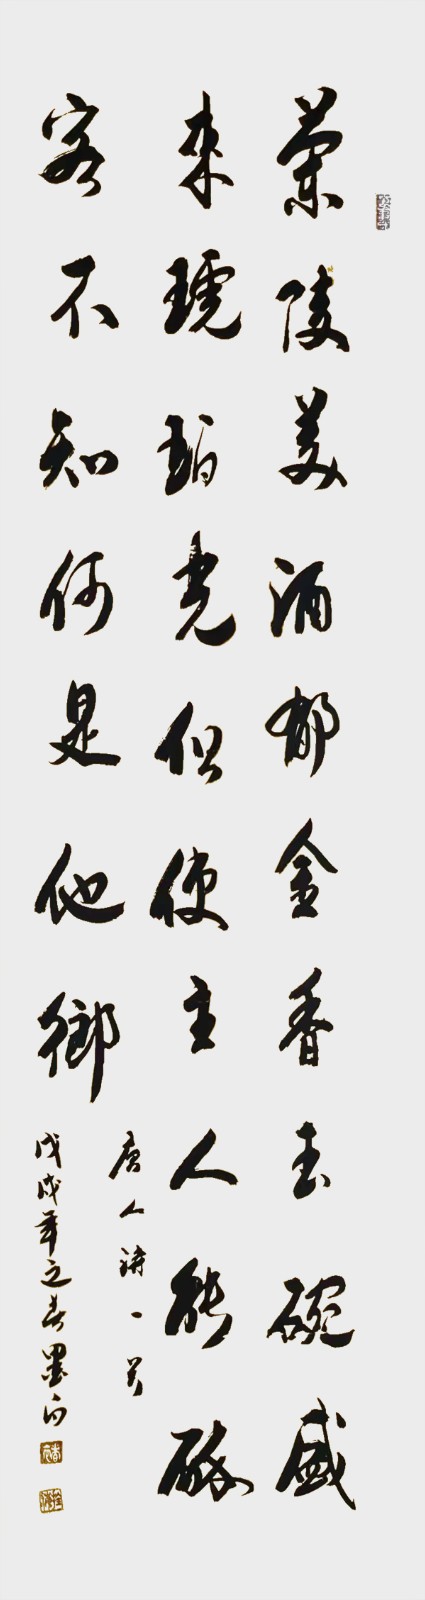 蘭陵美酒郁金香玉碗盛
来琥珀光但使主人能醉
客不知何是他鄉
唐人詩一首
戊戌年之春墨